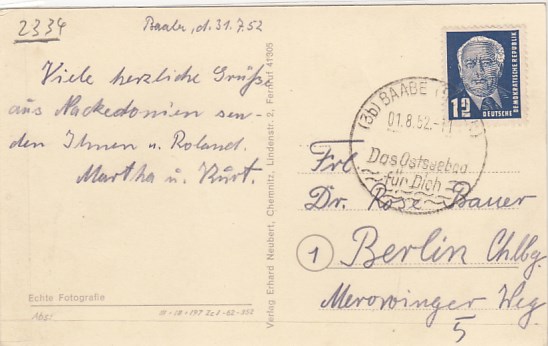 2334
Baabe, d. 31.7.52
Viele herzliche Grüße
aus Nackedonien sen-
den Ihnen u. Roland.
Martha u. Kurt.
Echte Fotografie
III-18-197
Verlag Erhard Neubert, Chemnitz, Lindenstr. 2, Fernruf 41305
12
DEUTSCHE
DEMOKRATISCHE REPUBLIK
(3b) BAABE
01.8.52.-11
Das Ostseebad
für Dich
Frl
Dr. Rose Bauer
1 Berlin Chlbg.
Merowinger Weg
5